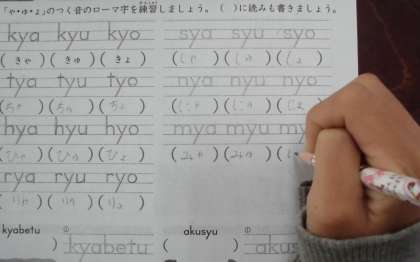 「や・ゆ・よ」のつく音のローマ字を練習しましょう。（ ）に読みも書きましょう。
kya kyu kyo sya syu syo
(きゃ)(きゅ)(きょ) (しゃ)(しゅ)(しょ)
tya tyu tyo nya nyu nyo
(ちゃ)(ちゅ)(ちょ) (にゃ)(にゅ)(にょ)
hya hyu hyo mya myu my
(ひゃ)(ひゅ)(ひょ) (みゃ)(みゅ)(
rya ryu ryo
(りゃ)(りゅ)(りょ)
kyabetu ① akusyu ①
) kyabetu ( ) akus